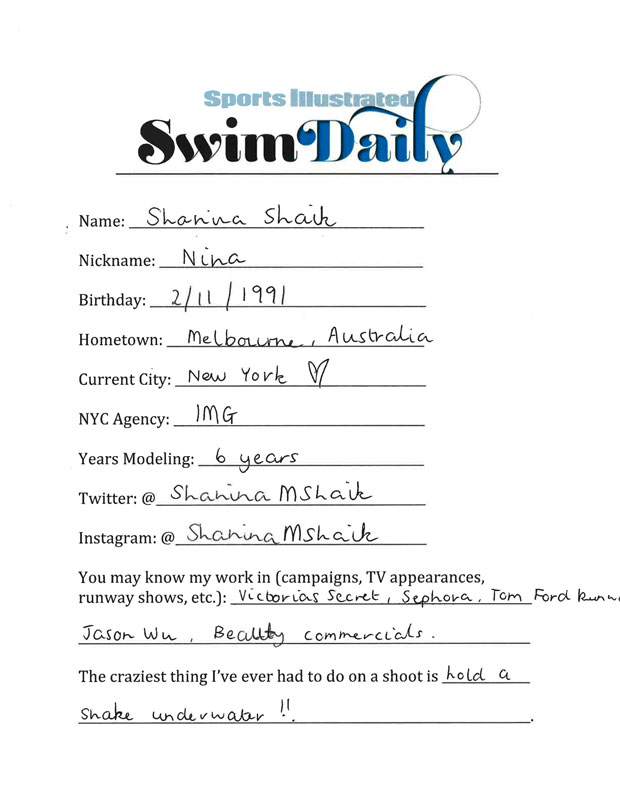 Sports Illustrated
Swim Daily
Name: Shanina Shaik
Nickname: Nina
Birthday: 2/11/1991
Hometown: Melbourne, Australia
Current City: New York ♡
NYC Agency: IMG
Years Modeling: 6 years
Twitter: @ShaninaMShaik
Instagram: @ShaninaMShaik
You may know my work in (campaigns, TV appearances,
runway shows, etc.): Victorias Secret, Sephora, Tom Ford
Jason Wu, Beauty commercials.
The craziest thing I've ever had to do on a shoot is hold a
snake underwater!!.